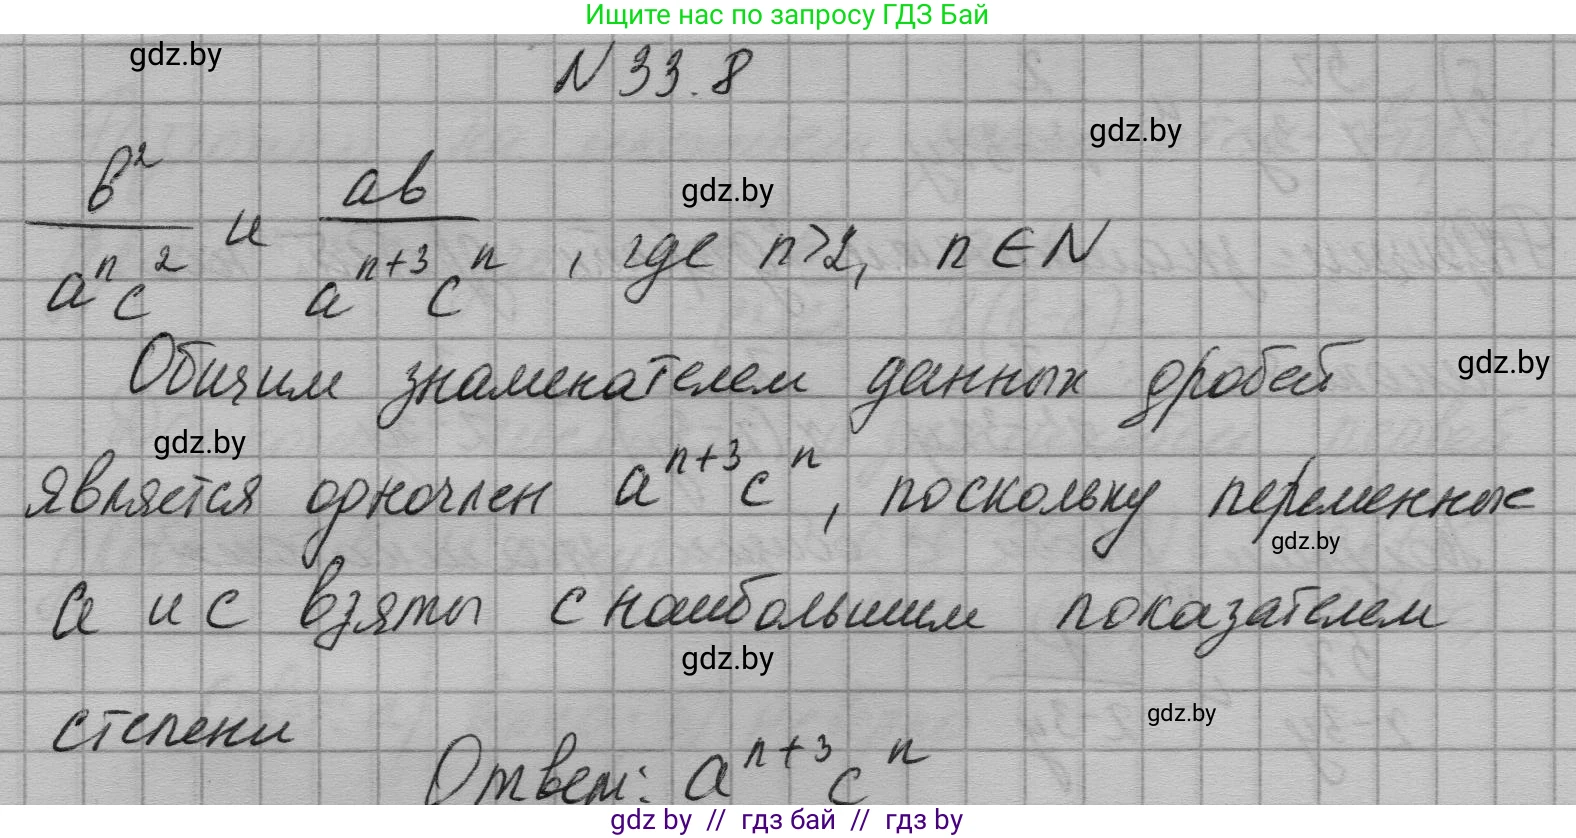 Ищите нас по запросу ГДЗ Бай
gdz.by
N 33.8
gdz.by
b² и ab
gdz.by
aⁿc² aⁿ⁺³cⁿ , где n>2, n ∈ N
Общим знаменателем данных дробей
gdz.by
gdz.by
является одночлен aⁿ⁺³cⁿ, поскольку переменные
gdz.by
a и c взяты с наибольшим показателем
gdz.by
степени
gdz.by
Ответ: aⁿ⁺³cⁿ
gdz by // гдз бай // гдз by